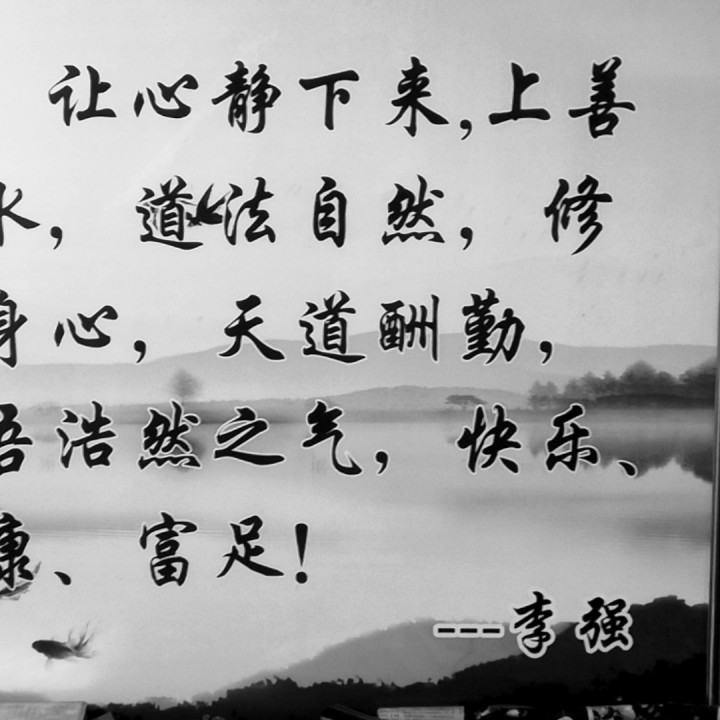 让心静下来,上善
水，道法自然，修
身心，天道酬勤，
吾浩然之气，快乐、
康、富足！
---李强